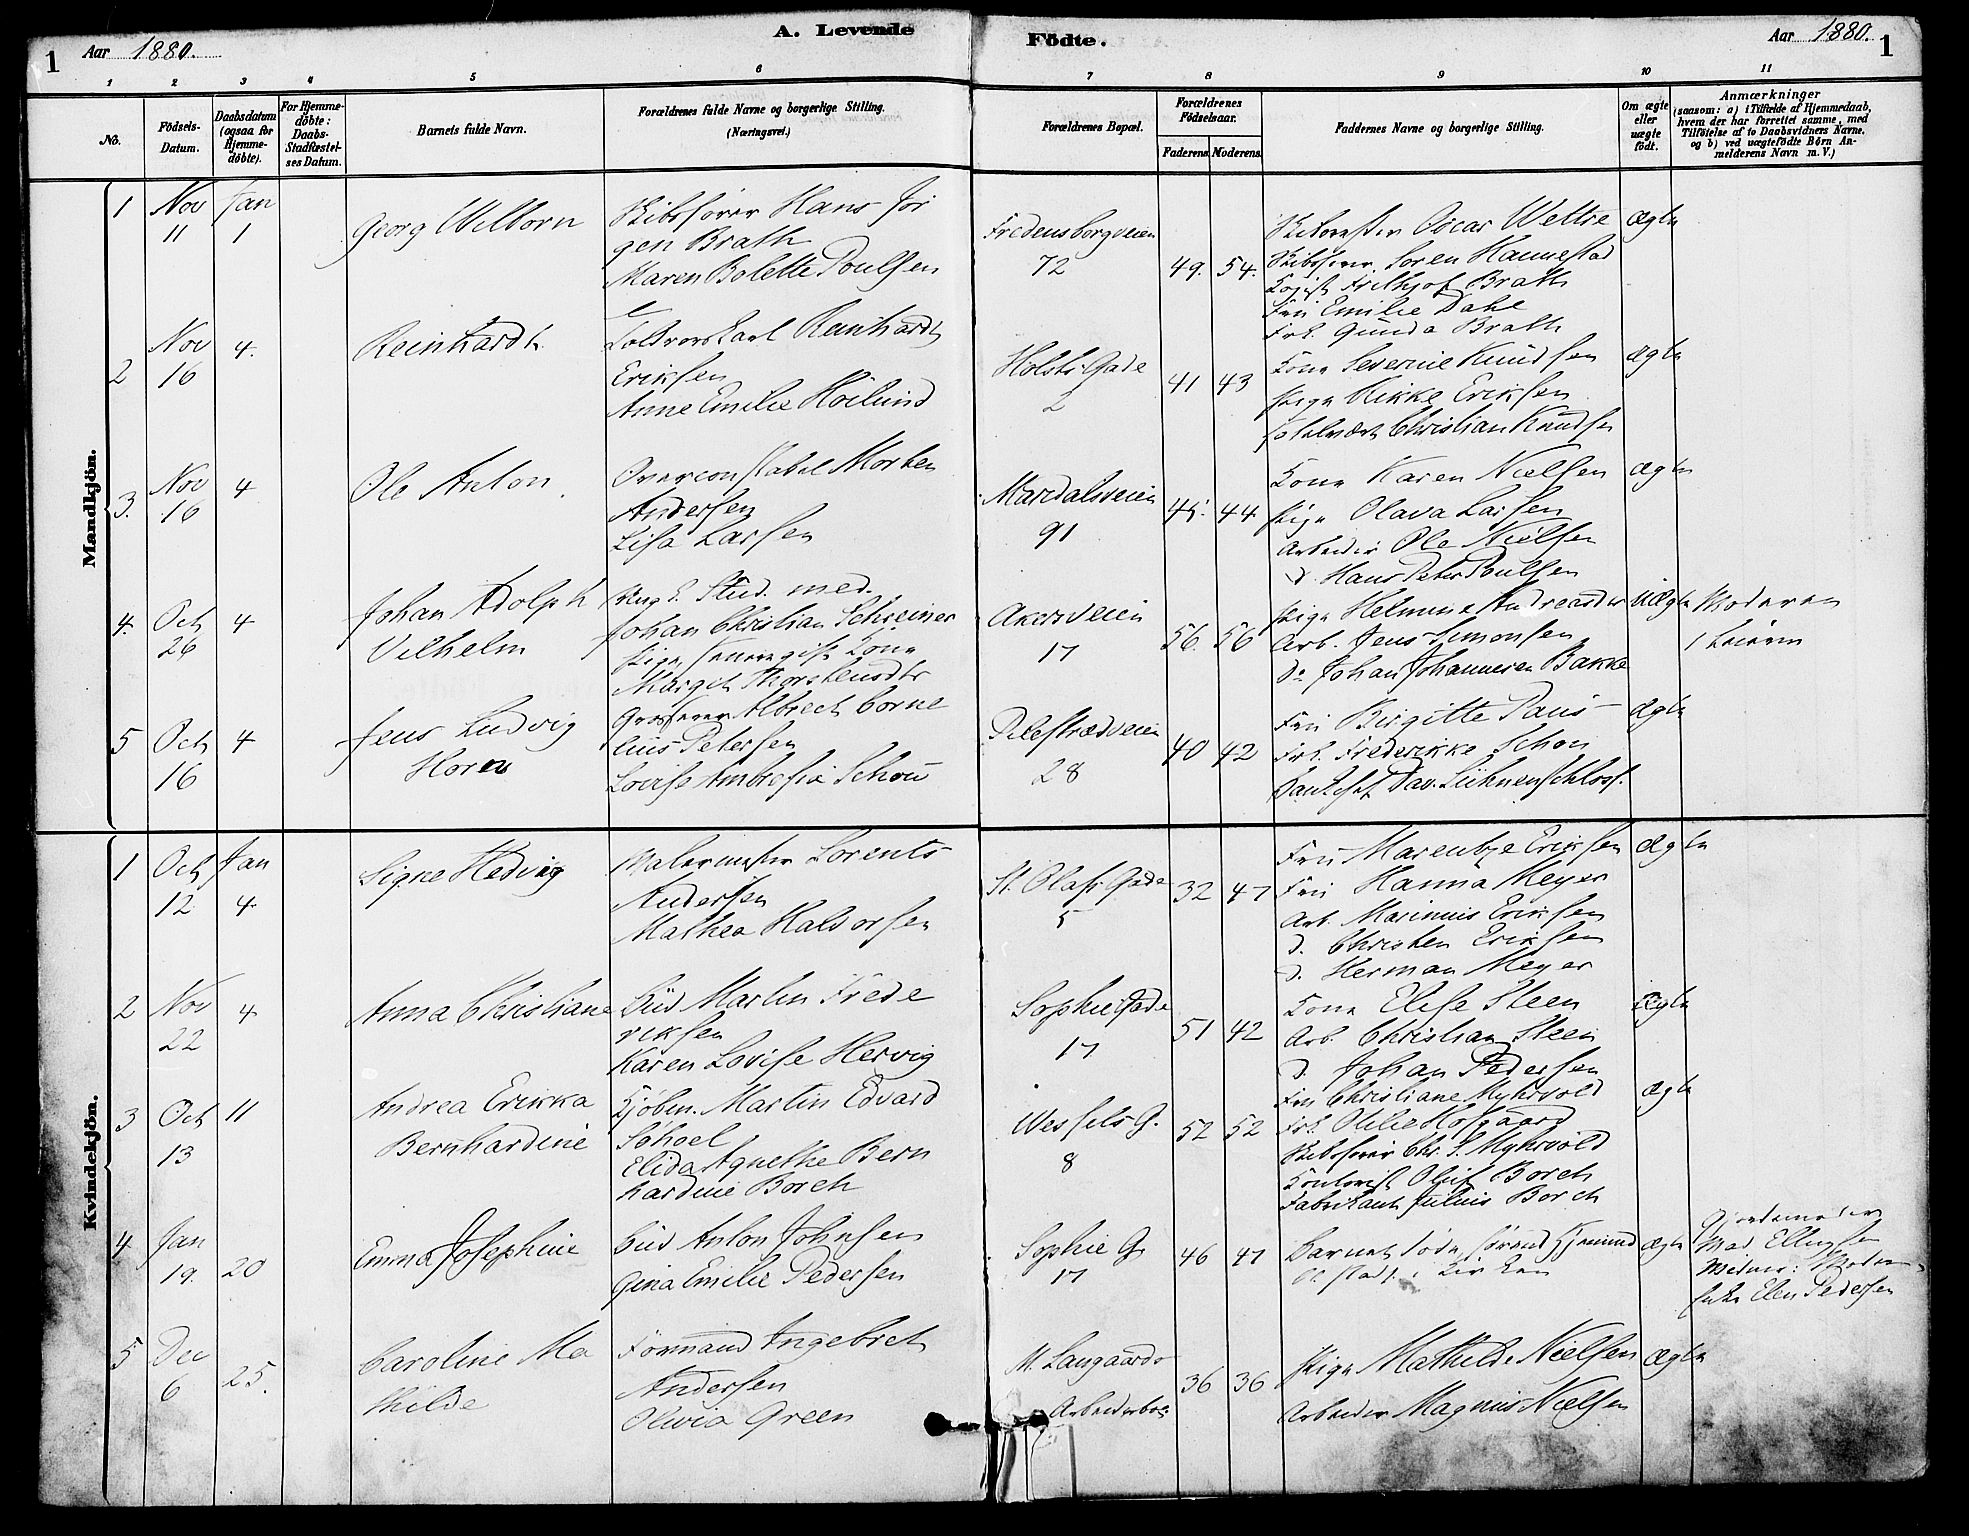 A. Levende Födte.
1 Aar 1880.
Aar 1880. 1
1 2 3 4 5 6 7 8 9 10 11
No.
Födsels-Datum.
Daabsdatum (ogsaa for Hjemmedöbte).
For Hjemmedöbte: Daabs-Stadfæstelses Datum.
Barnets fulde Navn.
Forældrenes fulde Navne og borgerlige Stilling. (Næringsvei.)
Forældrenes Bopæl.
Forældrenes Födselsaar.
Faderens. Moderens.
Faddernes Navne og borgerlige Stilling.
Om ægte eller uægte födt.
Anmærkninger
(saasom: a) i Tilfælde af Hjemmedaab, hvem der har forrettet samme, med Tilföielse af to Daabsvidners Navne. og b) ved uægtefödte Börn Anmelderens Navn m. V.)
Mandkjön.
1 Nov 11 Jan 1
Georg Wilborn
Skibsfører Hans Jör
gen Brath
Maren Bolette Poulsen
Fredensborgveien
72
49. 54.
Oscar Weltre
Skibsfører Soren Hannestad
Frithjof Brath
Fru Emilie Dahl
Frk. Gunda Brath
ægte
2 Nov 16 4.
Reinhardt
Reinhardt
Eriksen
Anne Emilie Höilund
Holsts Gade
2
41 43
Kone Severine Knudsen
Pige Rikke Eriksen
Christian Knudsen
ægte
3. Nov 16 4
Ole Anton
Overconstabel Morten
Andersen
Lisa Larsen
Maridalsveien
91
45. 44
Kone Karen Nielsen
Pige Olava Larsen
Arbeider Ole Nielsen
D. Hans Peter Poulsen
ægte
4. Oct 26 4
Johan Adolph
Vilhelm
Ung K. Stud. med.
Johan Christian Schreiner
Pige
Margit Thorstensdtr
Akersveien
17
56. 56
Pige Helmine Andreasdtr
Arb. Jens Simonsen
Do Johan Johannesen Bakke
uægte
Moderen
5 Oct 16 4
Jens Ludvig
Horn
Grosserer Albrect Corne
lius Petersen
Lovise Ambrosia Schou
Pilestrædveien
28
40 42
Fru Birgitte Paus
Frk. Frederikke Schou
Dav. Lühnenschloss.
ægte
Kvindekjön.
1 Oct 12 Jan 4
Signe Hedvig
Malermester Lorents
Andersen
Mathea Halvorsen
St. Olafs Gade
5
32 47
Fru Eriksen
Fru Hanna Meyer
Arb. Marinius Eriksen
D. Christen Eriksen
D. Herman Meyer
ægte
2 Nov 22 4
Anna Christiane
Bud Martin Frede
riksen
Karen Lovise Hervig
Sophie Gade
17
51 42
Kone Elise Steen
Arb. Christian Steen
D. Johan Pedersen
ægte
3 Oct 13 11
Andrea Erikka
Bernhardine
Kjöbm. Martin Edvard
Söhoel
Elida Agnethe Bern
hardine Borch
Wessels G.
8
52 52
Fru Christiane Myhrvold
Frk. Otilie Hofgaard
Skibsfører Chr. S. Myhrvold
Kontorist Oluf Borch
Fabrikant Julius Borch
ægte
4 Jan 19. 20
Emma Josephine
Bud Anton Johnsen
Gina Emilie Pedersen
Sophie G.
17
46 47
Barnet døde
i Kirken
ægte
Gjordemoder
Mad. Ellingsen
Elen Pedersen
5 Dec 6 25.
Caroline Ma
thilde
Formand Ingebret
Andersen
Olivia Green
M. Langaards
Arbeiderbol.
36 36
Pige Mathilde Nielsen
Arbeider Magnus Nielsen
ægte